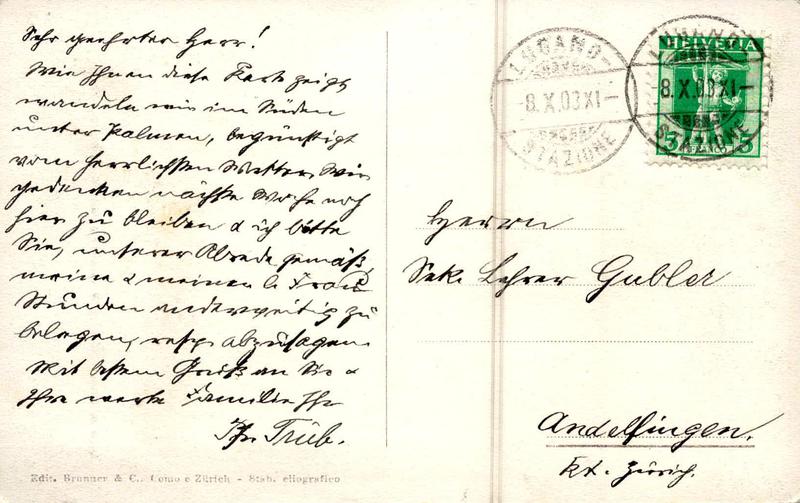 Sehr geehrter Herr!
Wie Ihnen diese Karte zeigt
wandeln wir im Süden
unter Palmen, begünstigt
vom herrlichsten Wetter. Wir
gedenken nächste Woche noch
hier zu bleiben & ich bitte
Sie, unserer Abrede gemäß
meine & meiner l. Frau
Stunden anderweitig zu
belegen, resp. abzusagen.
Mit bestem Gruß an Sie &
Ihre werte Familie Ihr
Trüb.
Edit. Brunner & C., Como e Zürich - Stab. eliografico
LUGANO
8.X.03 XI
STAZIONE
HELVETIA
5 5
FRANCO
LUGANO
8.X.03 XI
STAZIONE
Herrn
Sek. Lehrer Gubler
Andelfingen.
Kt. Zürich.